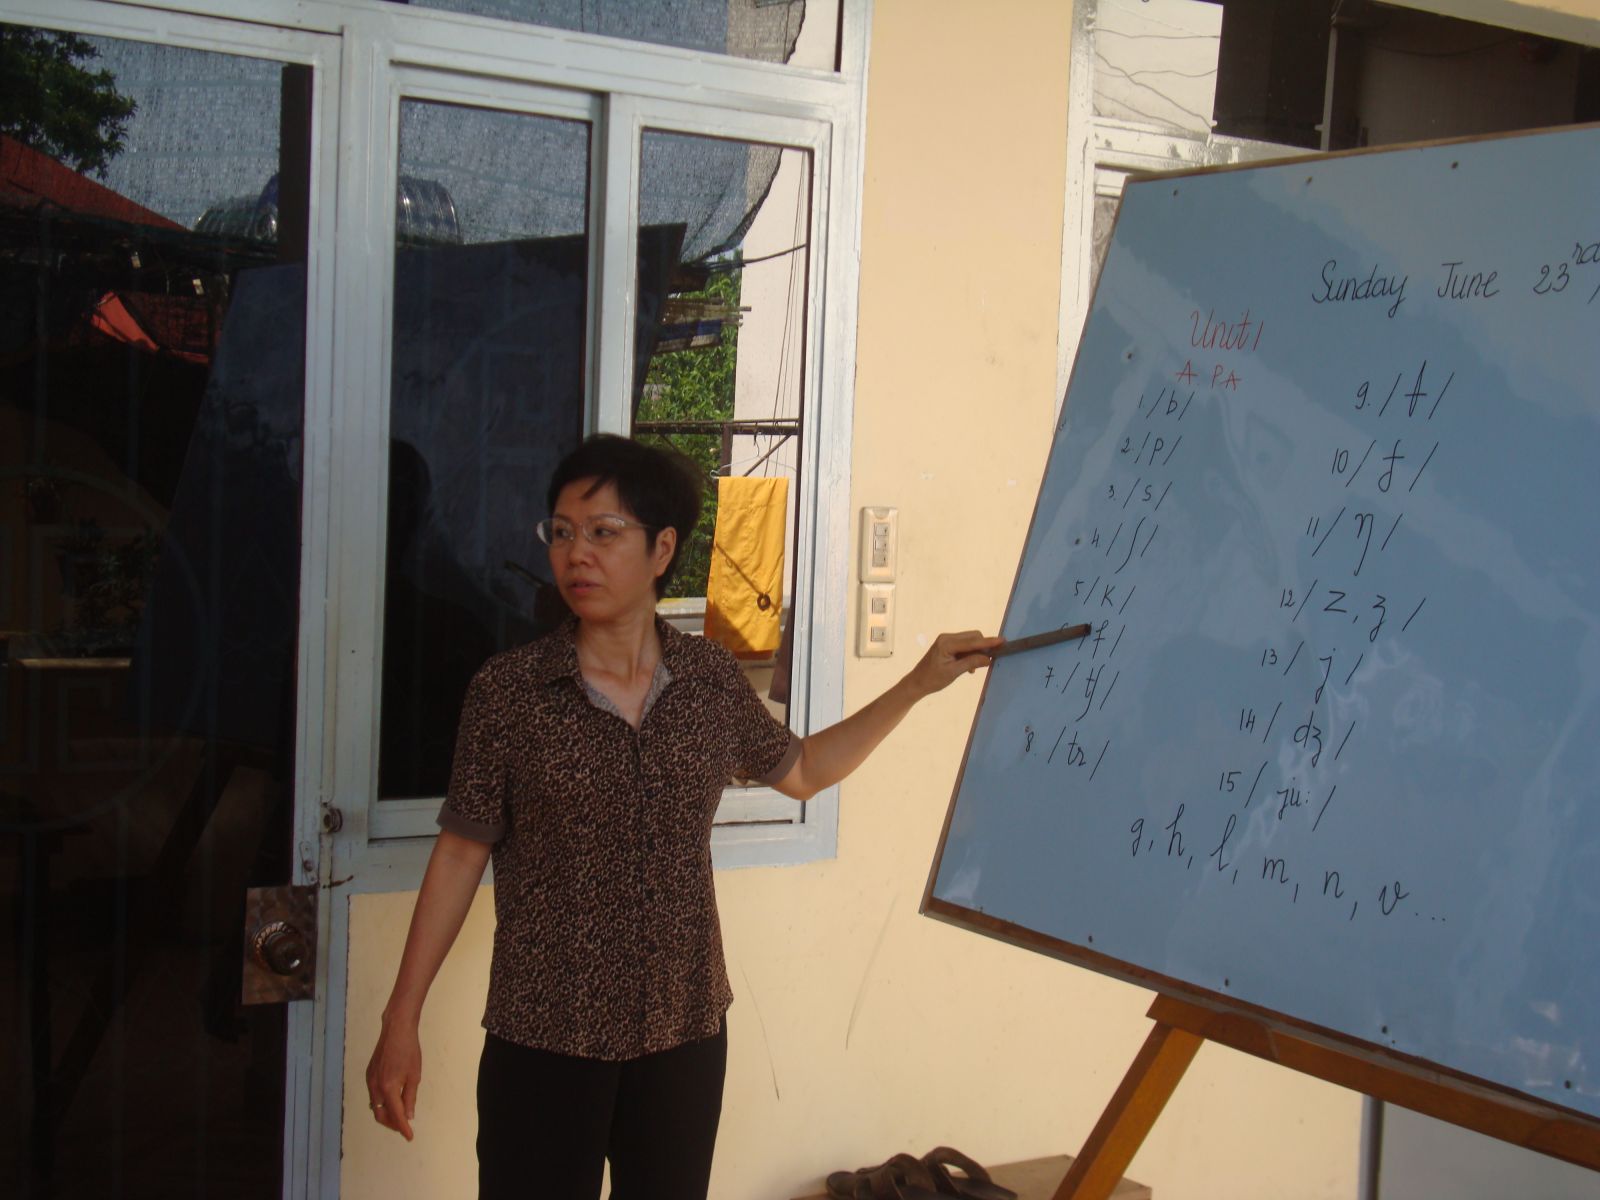 Sunday June 23rd/
Unit 1
A. PA
1. /b/
2. /p/
3. /s/
4. /ʃ/
5 /k/
/f/
7. /tʃ/
8. /tr/
9. /t/
10 / f /
11 / η /
12 / z, ʒ /
13 / j /
14 / dʒ /
15 / ju: /
g, h, l, m, n, v...